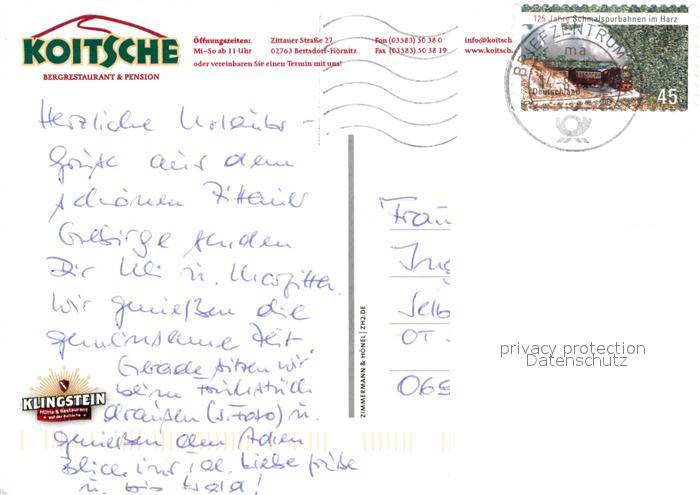 KOITSCHE
BERGRESTAURANT & PENSION
Öffnungszeiten:
Mi–So ab 11 Uhr
oder vereinbaren Sie einen Termin mit uns!
Zittauer Straße 27
02763 Bertsdorf-Hörnitz
Fon (03583) 50 38 0
Fax (03583) 50 38 19
info@koitsch
www.koitsch.
125 Jahre Schmalspurbahnen im Harz
BRIEFZENTRUM
ma
Deutschland
45
Herzliche Urlaubs-
grüße aus dem
schönen Zittauer
Gebirge senden
Dir Uli u. Margitta.
Wir genießen die
gemeinsame Zeit.
Gerade sitzen wir
beim Frühstück
draußen (s. Foto) u.
genießen den
Blick ins Tal. Liebe Grüße
u. bis bald!
KLINGSTEIN
Hütte & Restaurant
auf der Koitsche
ZIMMERMANN & HÖNEL | ZH2.DE
Frau
Ing
Selb
OT
065
privacy protection
Datenschutz